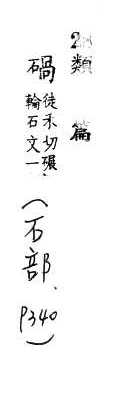 2類篇
碢 徒禾切碾
輪石文一
(石部, p340)